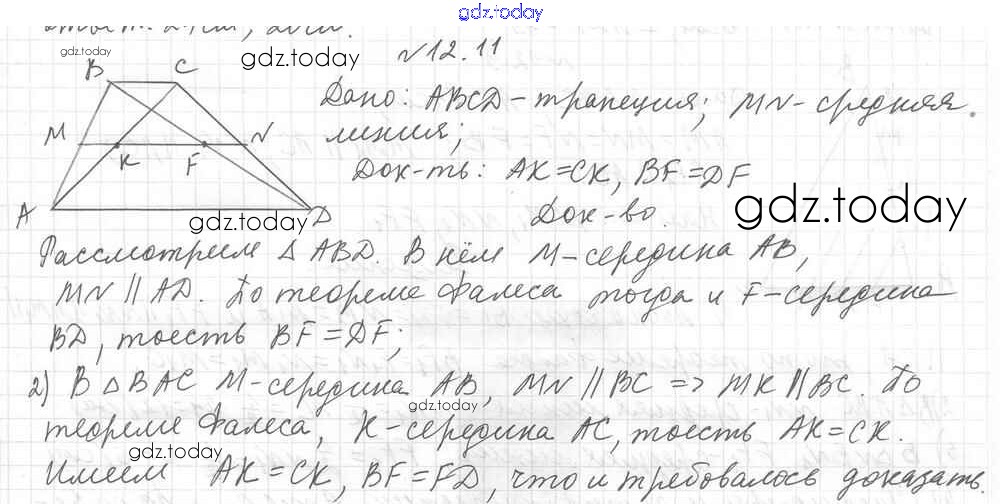 gdz.today
ответ: 24см, 20см.
gdz.today
gdz.today
№12.11
B C
Дано: ABCD-трапеция; MN-средняя
M N линия;
K F
Док-ть: AK=CK, BF=DF
A D
gdz.today
Док-во.
gdz.today
Рассмотрим △ ABD. В нём M-середина AB,
MN || AD. По теореме Фалеса тогда и F-середина
BD, тоесть BF=DF;
2) В △ BAC M-середина AB, MN || BC => MK || BC. По
gdz.today
теореме Фалеса, K-середина AC, тоесть AK=CK.
gdz.today
Имеем AK=CK, BF=FD, что и требовалось доказать.